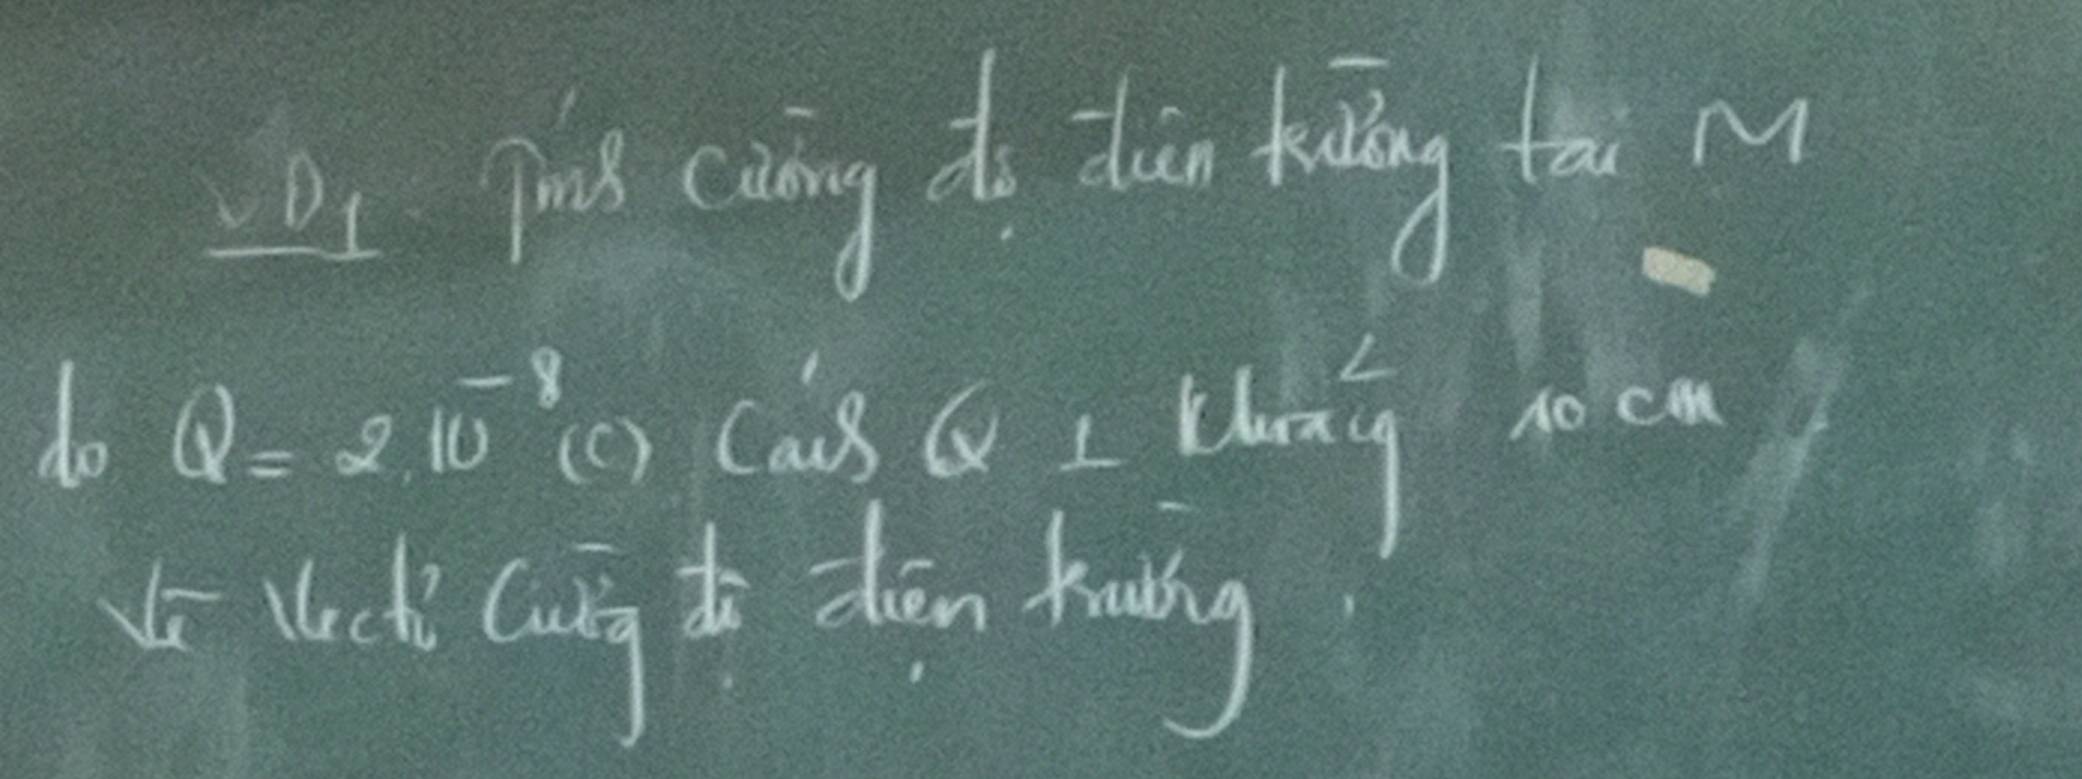 VD1. Tính cường độ điện trường tại M
do Q = 2.10⁻⁸ (C) cách Q 1 khoảng 10 cm
vẽ Vectơ cường độ điện trường.